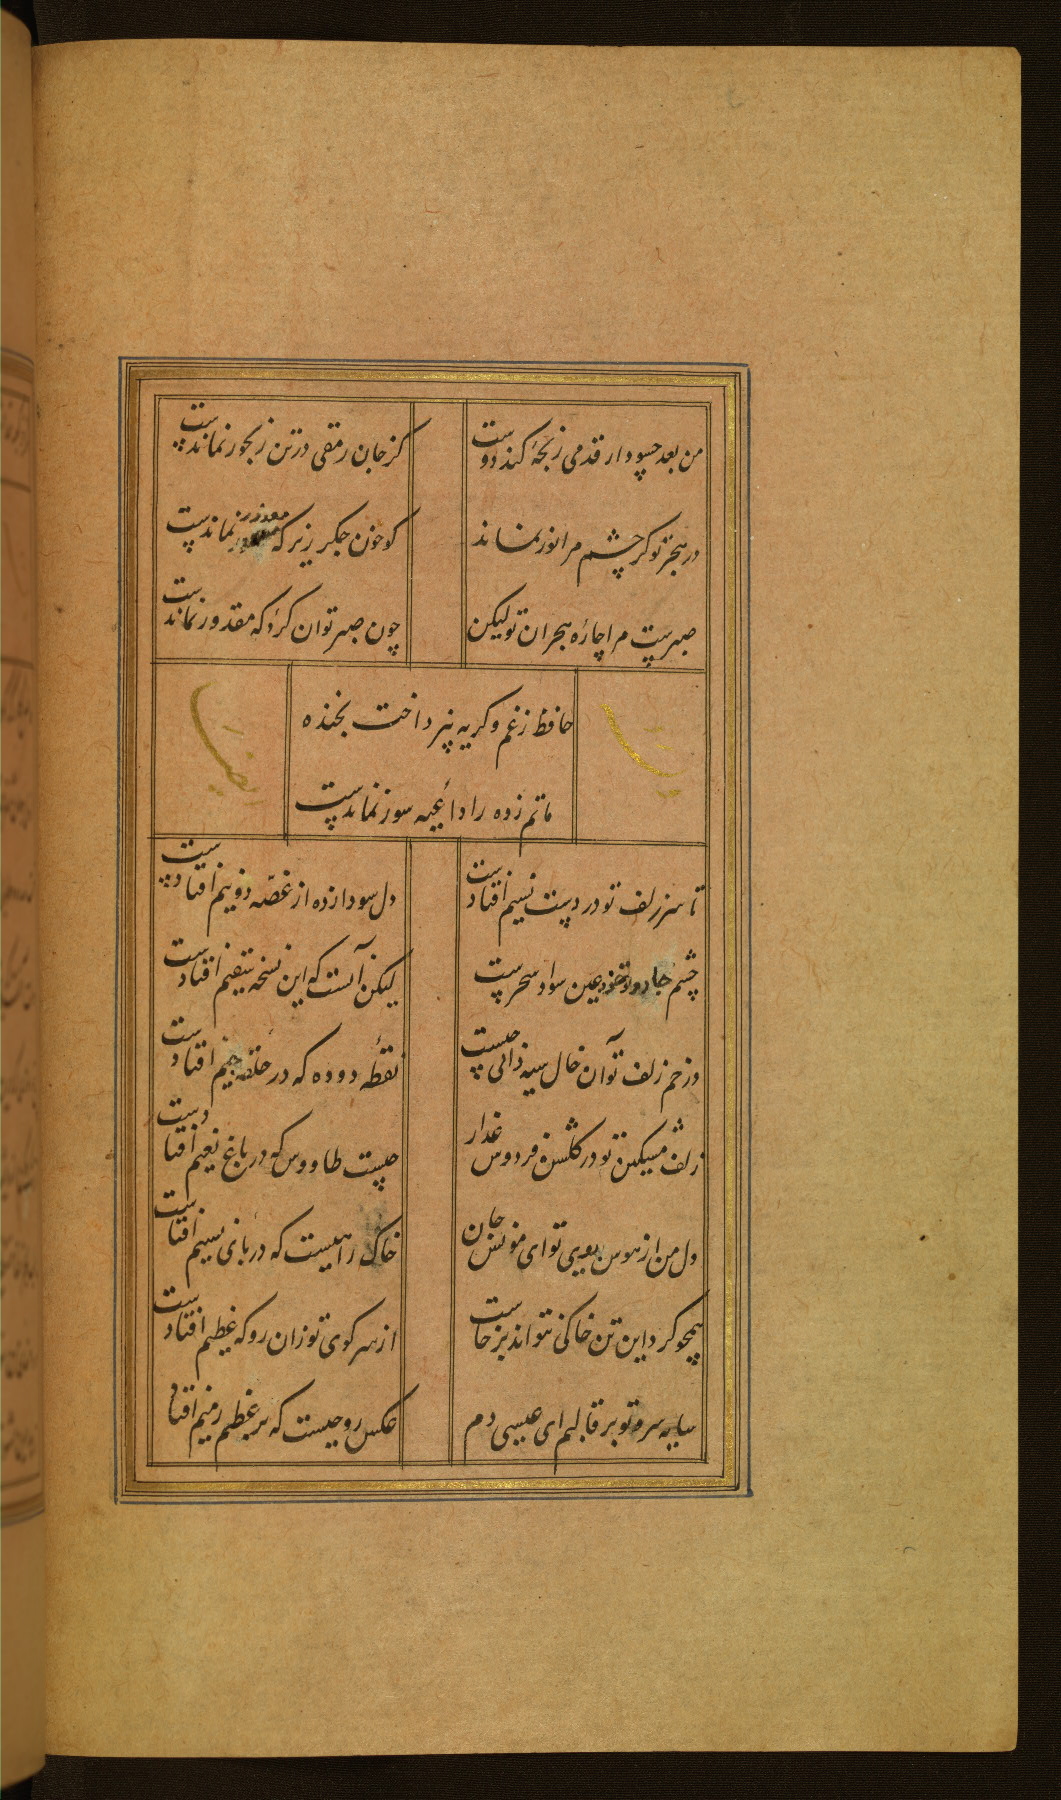 من بعد چه سود ار قدمی رنجه کند دوست
کز جان رمقی در تن رنجور نماندست
در هجر تو گر چشم مرا نور نماند
گو خون جگر ریز که معذور نماندست
صبرست مرا چاره هجران تو لیکن
چون صبر توان کرد که مقدور نماندست
حافظ ز غم و گریه نپرداخت بخنده
ماتم زده را داعیه سور نماندست
تا سر زلف تو در دست نسیم افتادست
دل سودازده از غصه دو نیم افتادست
چشم جادوی تو خود عین سواد سحرست
لیکن آنست که این نسخه سقیم افتادست
در خم زلف تو آن خال سیه دانی چیست
نقطه دوده که در حلقه جیم افتادست
زلف مشکین تو در گلشن فردوس عذار
چیست طاووس که در باغ نعیم افتادست
دل من از هوس بوی تو ای مونس جان
خاک راهیست که در پای نسیم افتاست
همچو گرد این تن خاکی نتواند برخاست
از سر کوی تو زان رو که عظیم افتادست
سایه سرو تو بر قالبم ای عیسی دم
عکس روحیست که بر عظم رمیم افتاد